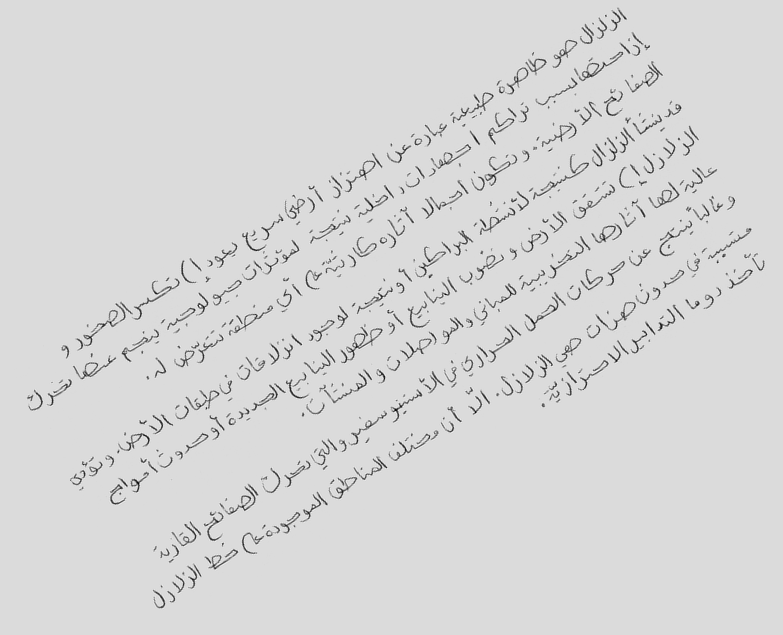 الزلزال هو ظاهرة طبيعية عبارة عن اهتزاز أرضي سريع يعود إلى تكسر الصخور و
إزاحتها بسبب تراكم اجهادات داخلية نتيجة لمؤثرات جيولوجية ينجم عنها تحرك
الصفائح الأرضية. وتكون اجمالا آثاره كارثيّة على أي منطقة تتعرّض له.
قد ينشأ الزلزال كنتيجة لأنشطة البراكين أو نتيجة لوجود انزلاقات في طبقات الأرض. وتؤدي
الزلازل إلى تشقق الأرض ونضوب الينابيع أو ظهور الينابيع الجديدة أو حدوث أمواج
عالية لها آثارها التخريبية للمباني والمواصلات والمنشآت.
وغالباً ينتج عن حركات الحمل الحراري في الأستينوسفير والتي تحرك الصفائح القارية
متسببة في حدوث هزات هي الزلازل. الّا أن مختلف المناطق الموجودة على خط الزلازل
تأخذ دوما التدابير الاحترازيّة.